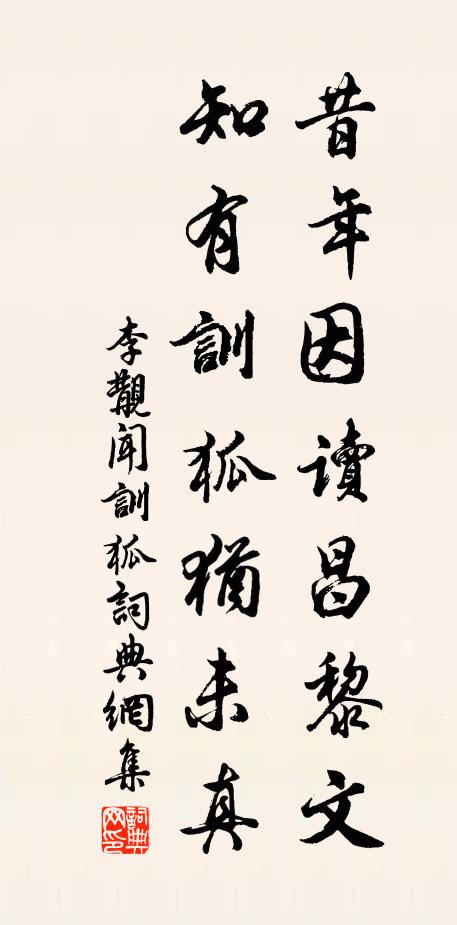 昔年因讀昌黎文
知有訓狐猶未真
李覯聞訓狐詞典網集
詞典網印